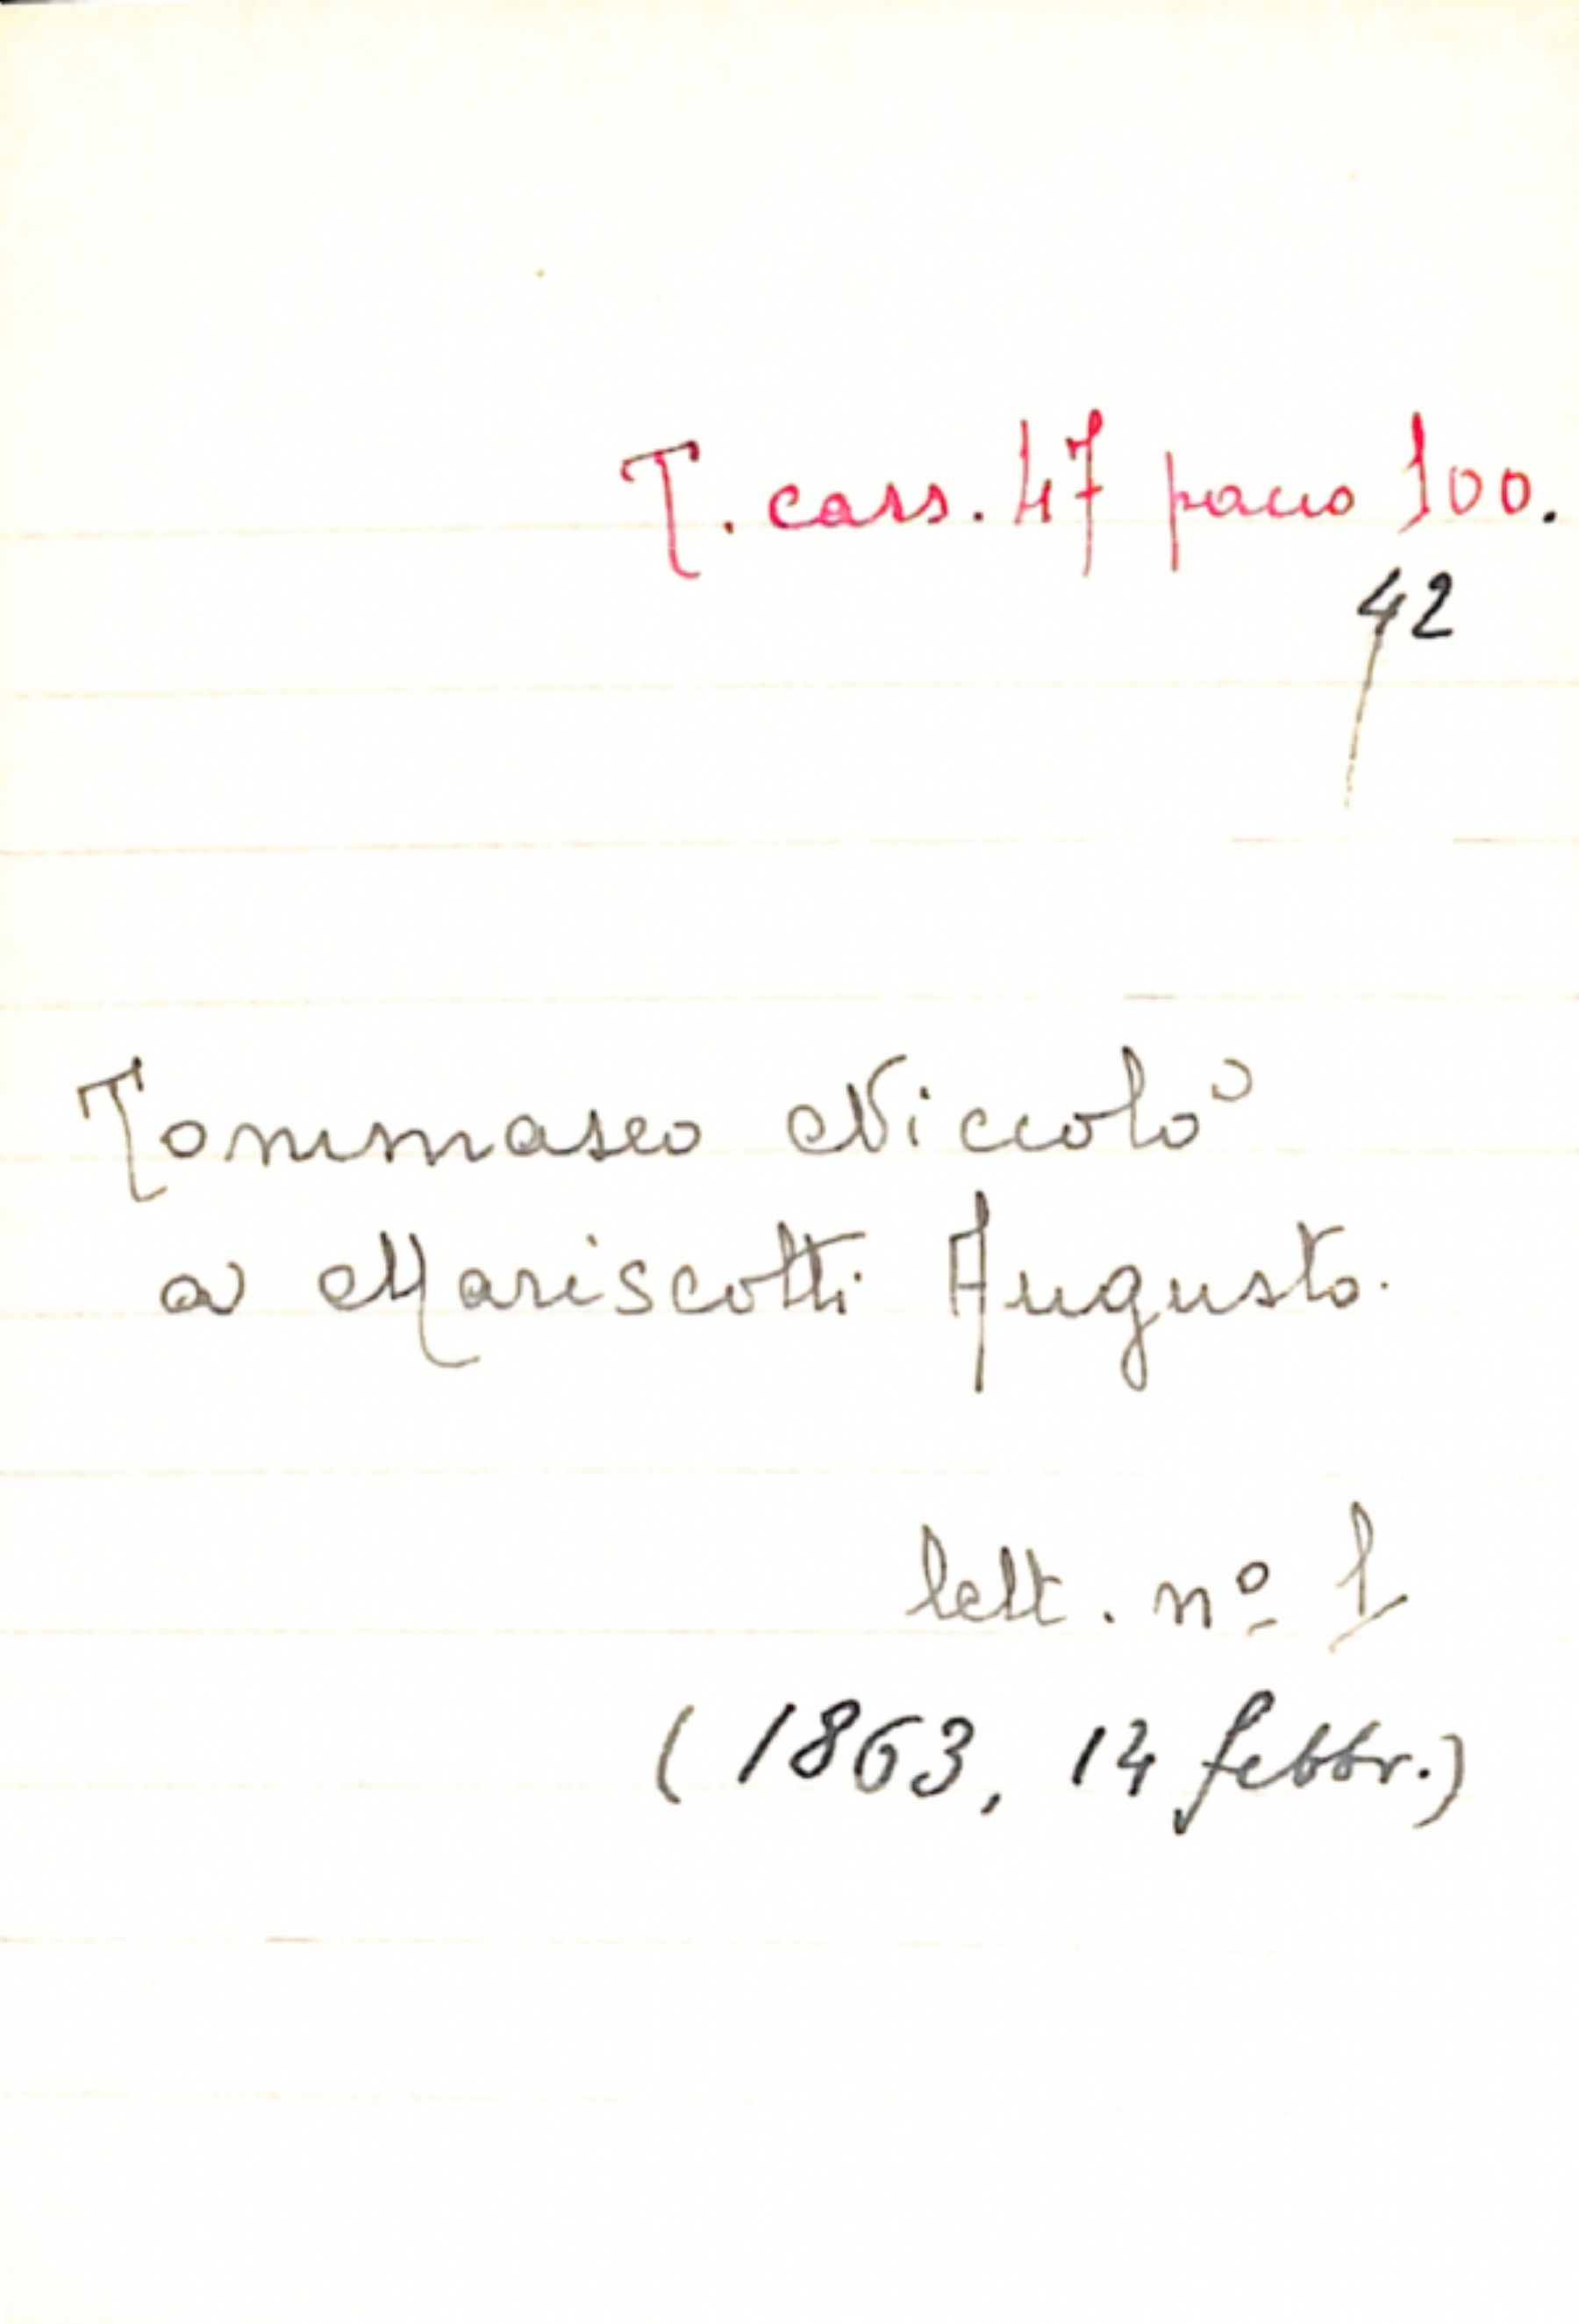 T. cass. 47 pacco 100.
42
Tommaseo Niccolò
a Mariscotti Augusto.
lett. nº 1
(1863, 14 febbr.)